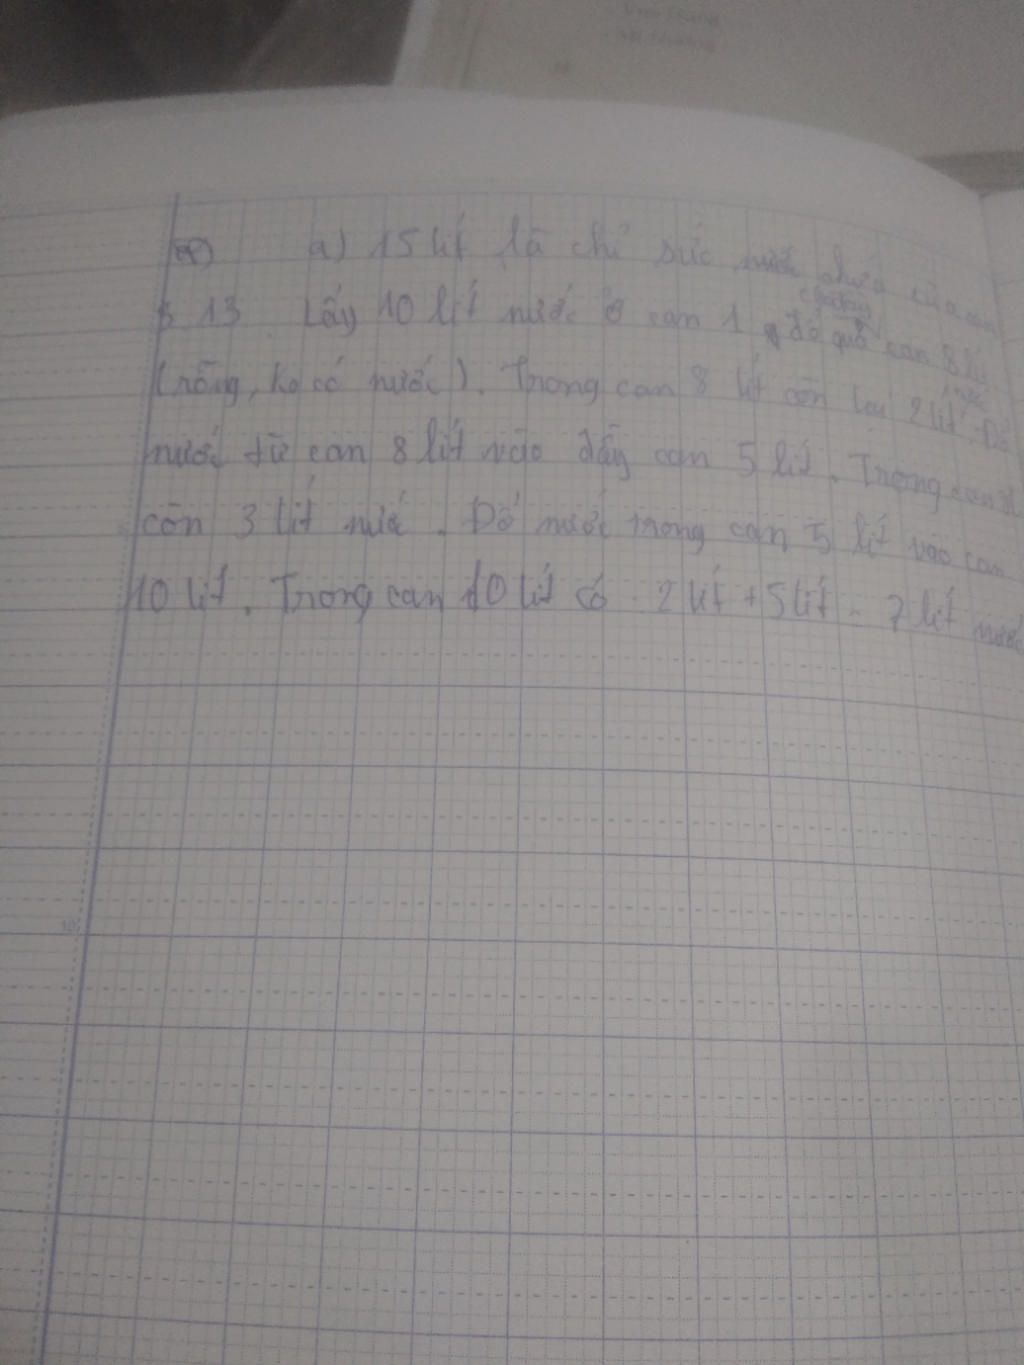 a) 15 lít là chỉ sức chứa của can
B 13 Lấy 10 lít nước ở can 1 đổ qua can 8 lít
(rỗng, ko có nước). Trong can 8 lít còn lại 2 lít nước. Đổ
nước từ can 8 lít vào đầy can 5 lít. Trong can 8l
còn 3 lít nước. Đổ nước trong can 5 lít vào can
10 lít. Trong can 10 lít có 2 lít + 5 lít = 7 lít nước